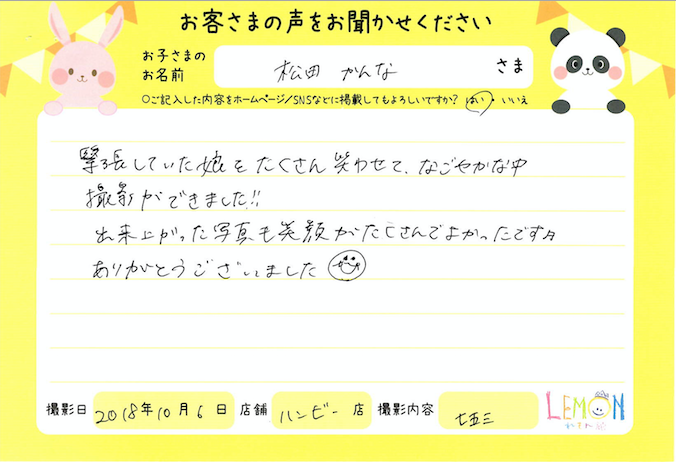 お客さまの声をお聞かせください
お子さまの
お名前
松田 かんな
さま
○ご記入した内容をホームページ/SNSなどに掲載してもよろしいですか? はい・いいえ
緊張していた娘をたくさん笑わせて、なごやかな中
撮影ができました!!
出来上がった写真も笑顔がたくさんでよかったです♪
ありがとうございました
撮影日 2018年10月6日 店舗 ハンビー 店 撮影内容 七五三
LEMON